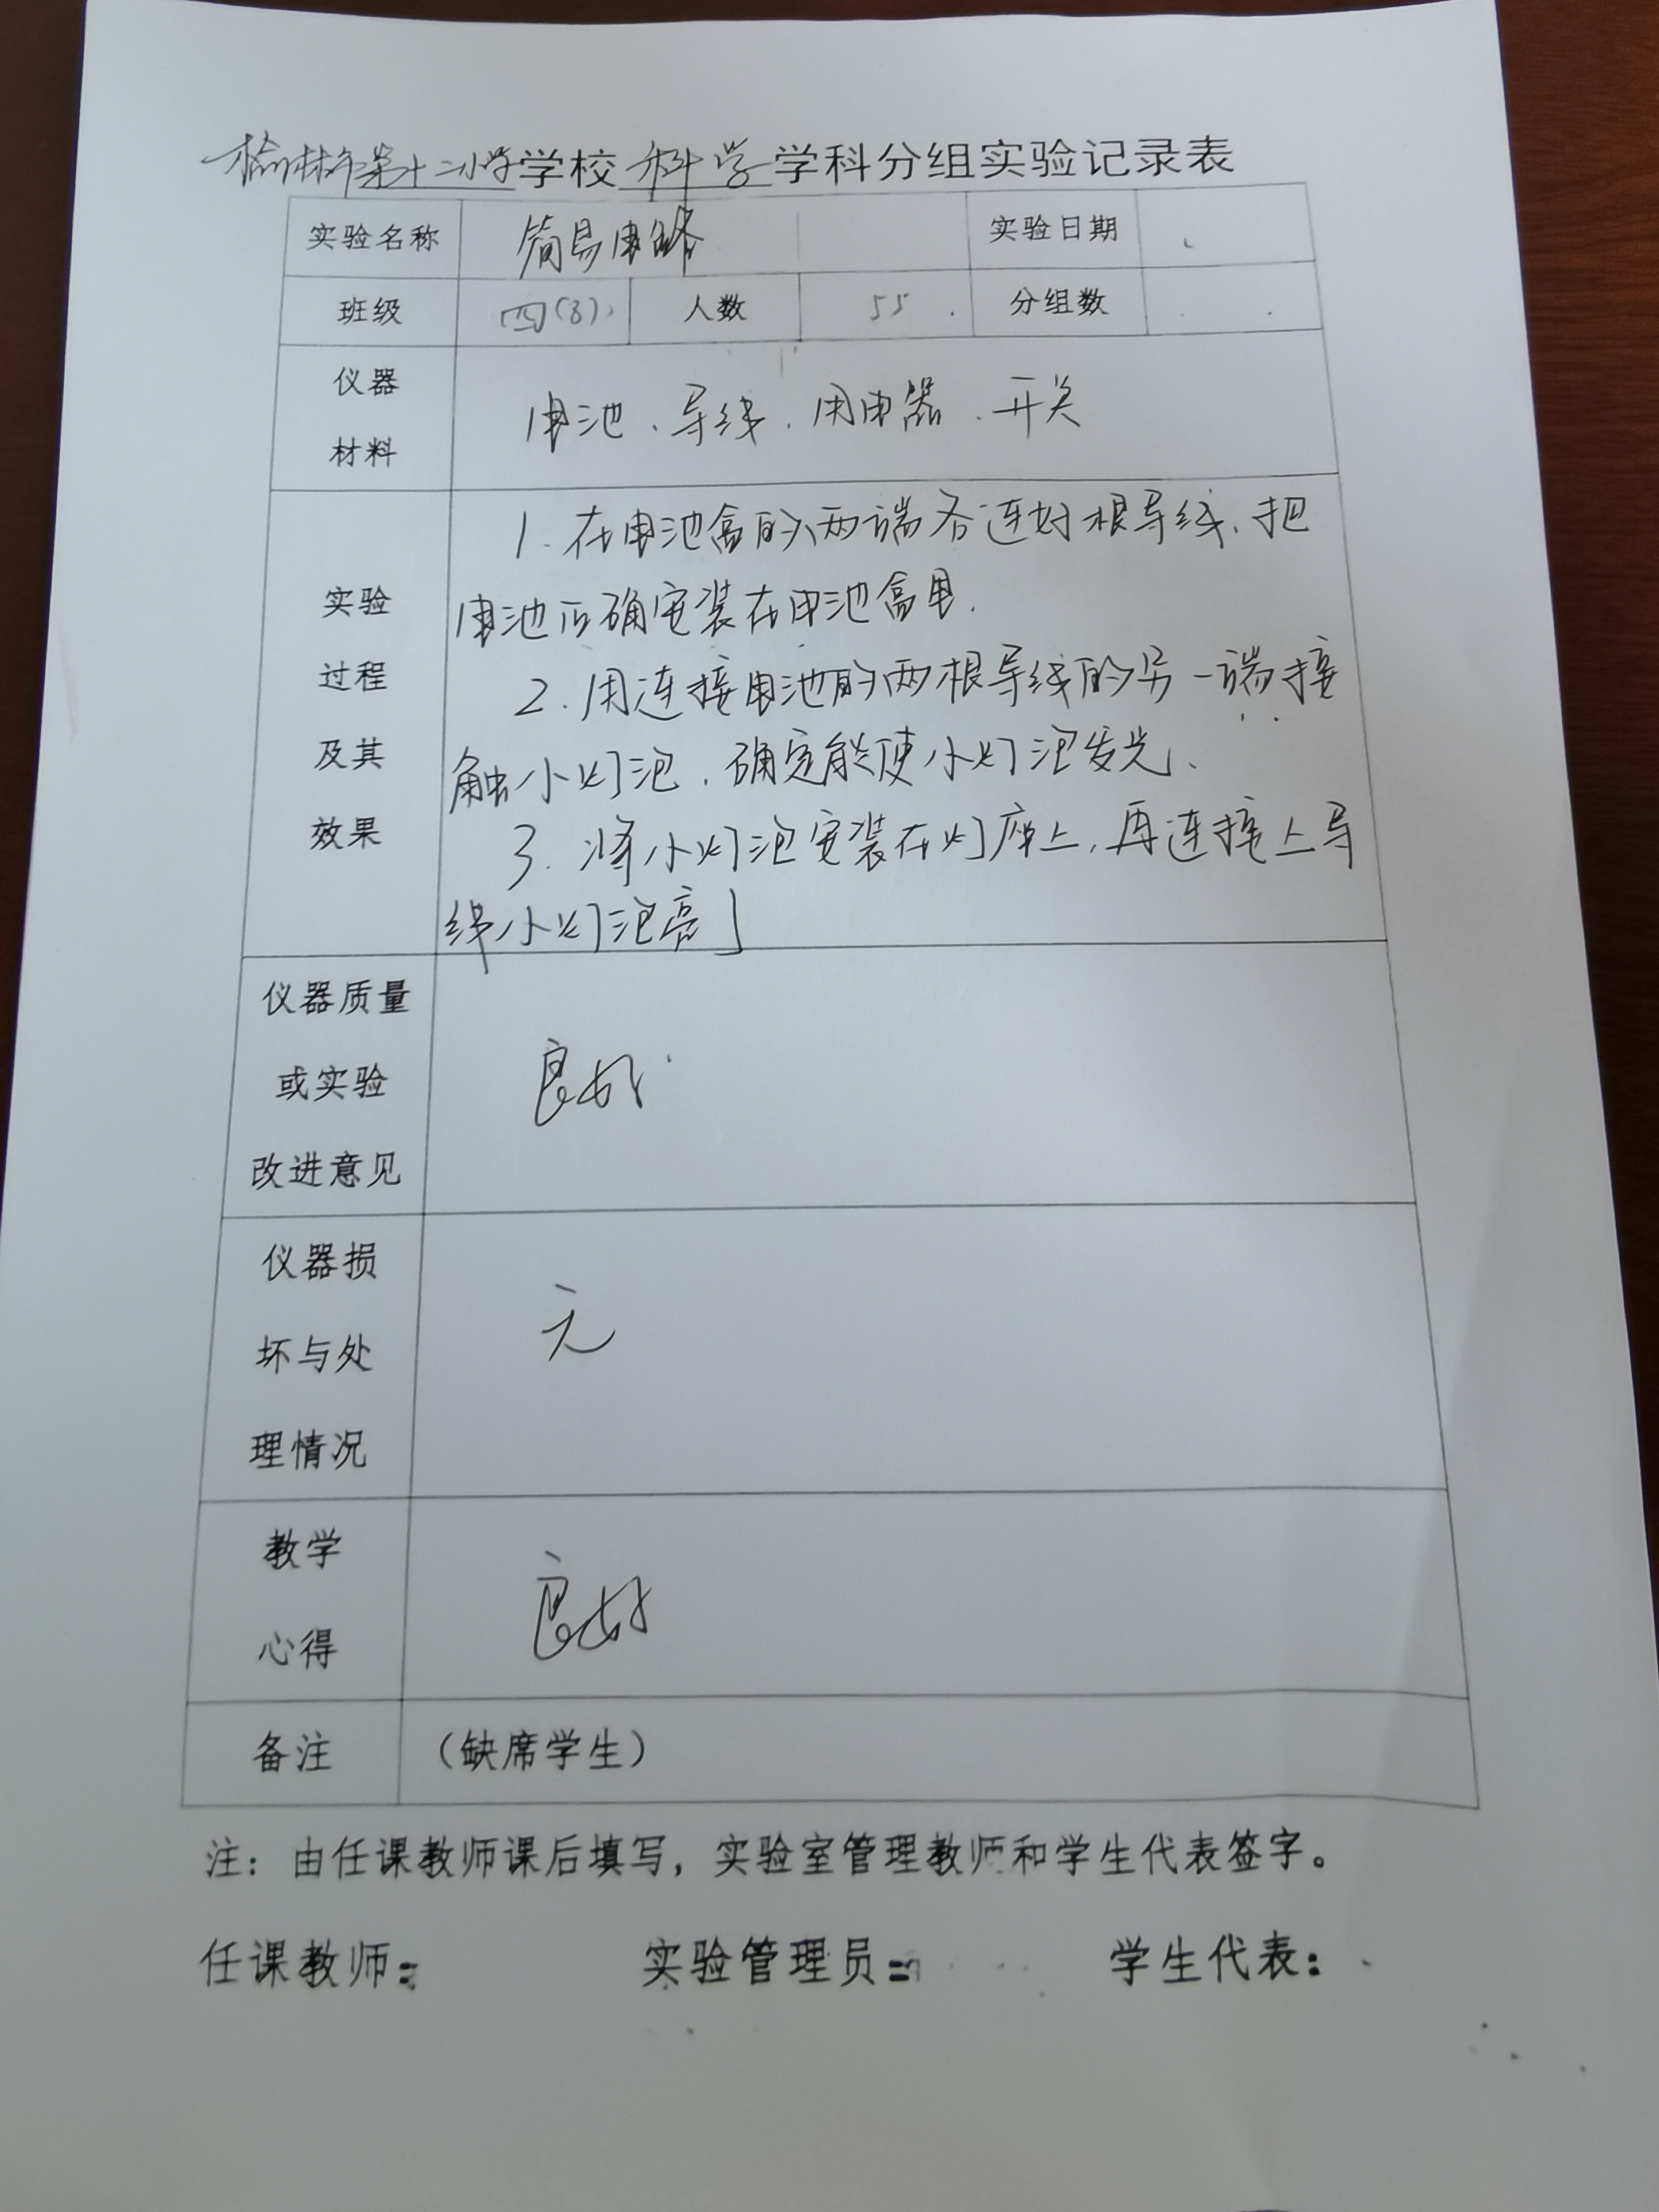 榆林市第十二小学学校科学学科分组实验记录表
实验名称 简易电路 实验日期
班级 四(8) 人数 55 分组数
仪器
材料
电池、导线、用电器、开关
实验
过程
及其
效果
1.在电池盒的两端各连好根导线,把
电池正确安装在电池盒里.
2.用连接电池的两根导线的另一端接
触小灯泡,确定能使小灯泡发光、
3.将小灯泡安装在灯座上,再连接上导
线小灯泡亮了
仪器质量
或实验
改进意见
良好
仪器损
坏与处
理情况
无
教学
心得
良好
备注 (缺席学生)
注:由任课教师课后填写,实验室管理教师和学生代表签字。
任课教师: 实验管理员: 学生代表: